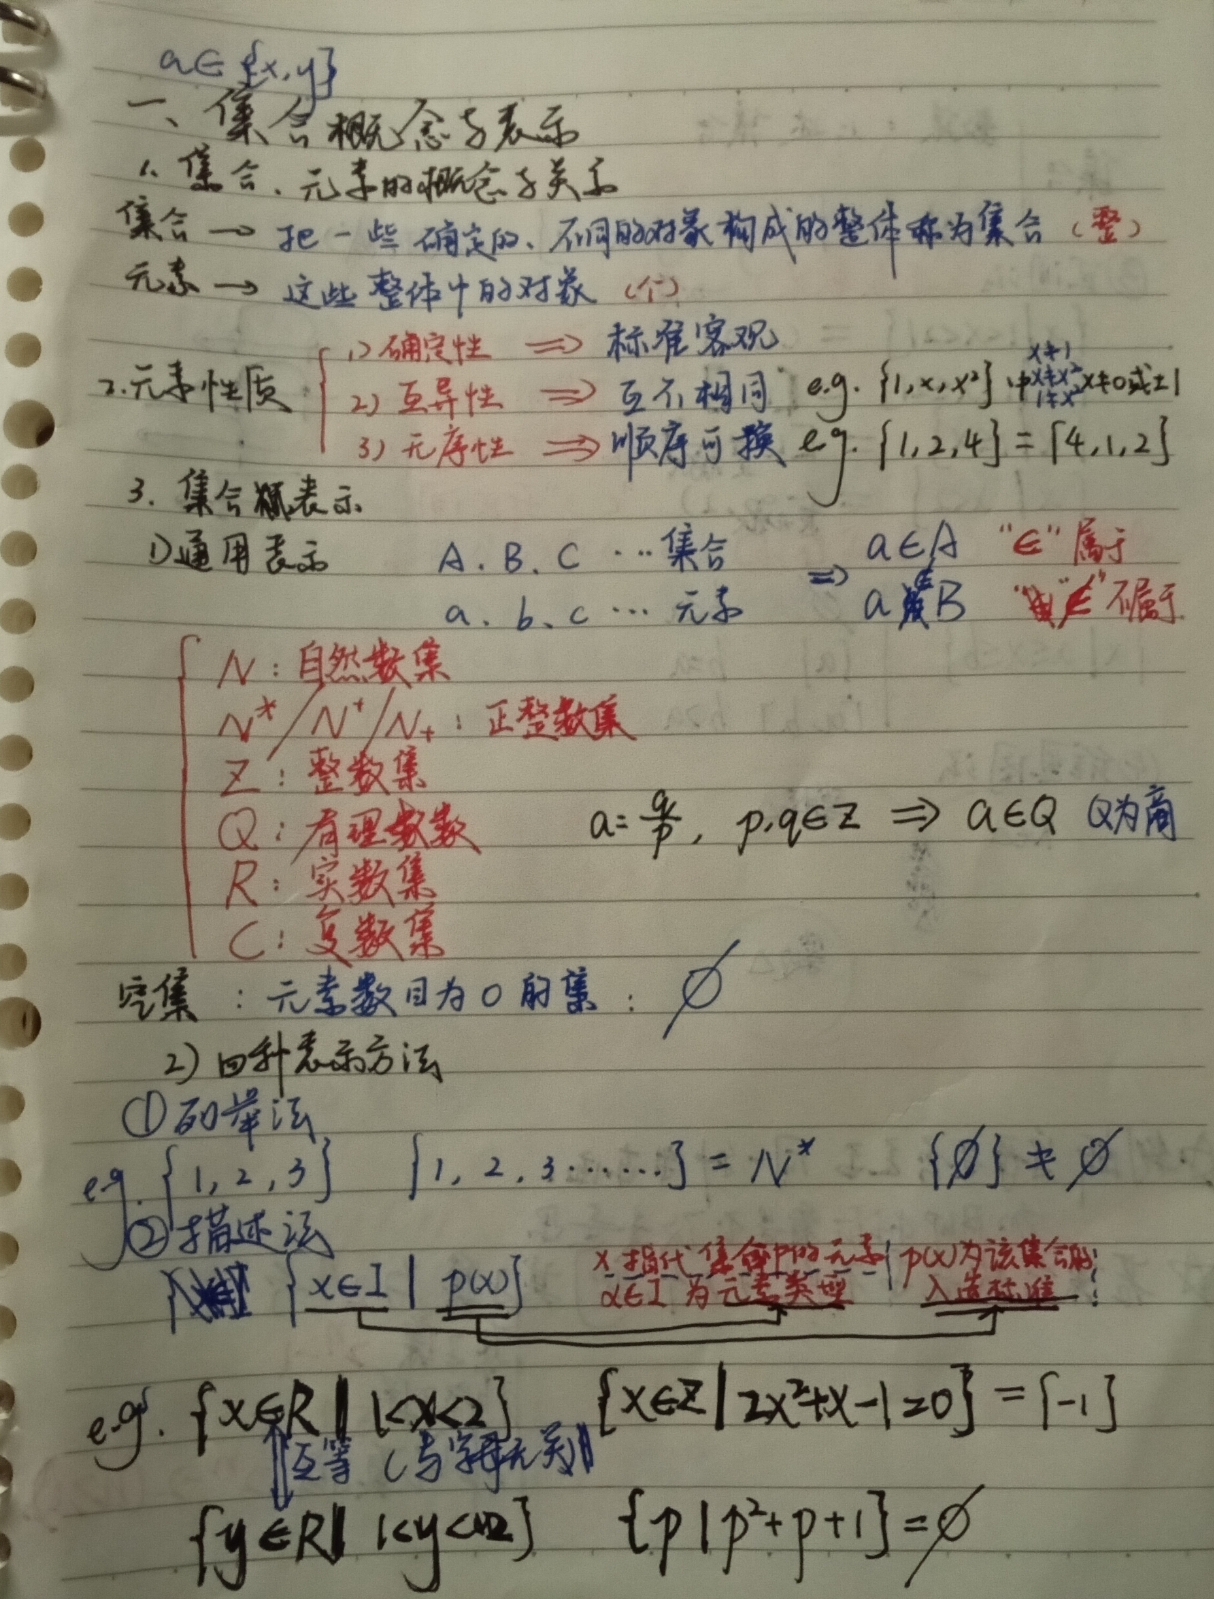 a∈{x,y}
一、集合概念与表示
1. 集合、元素的概念与关系
集合 → 把一些确定的、不同的对象构成的整体称为集合（整）
元素 → 这些整体中的对象（个）
2.元素性质
1) 确定性 ⇒ 标准客观
2) 互异性 ⇒ 互不相同 e.g. {1,x,x²} 中 x≠1 x≠x² 1≠x² x≠0或±1
3) 无序性 ⇒ 顺序可换 e.g. {1,2,4}={4,1,2}
3. 集合表示
1)通用表示 A、B、C … 集合 ⇒ a∈A "∈"属于
a、b、c … 元素 a∉B "∉"不属于
N：自然数集
N*/N⁺/N₊：正整数集
Z：整数集
Q：有理数数 a=q/p, p,q∈Z ⇒ a∈Q Q为商
R：实数集
C：复数集
空集：元素数目为0的集：∅
2) 四种表示方法
①列举法
e.g. {1,2,3} {1,2,3……}=N* {∅}≠∅
②描述法
{x∈I | p(x)} x指代集合中的元素 p(x)为该集合的
x∈I为元素类型 入选标准
e.g. {x∈R | 1<x<2} {x∈Z | 2x²+x-1=0}={-1}
互等（与字母无关）
{y∈R | 1<y<2} {p | p²+p+1}=∅